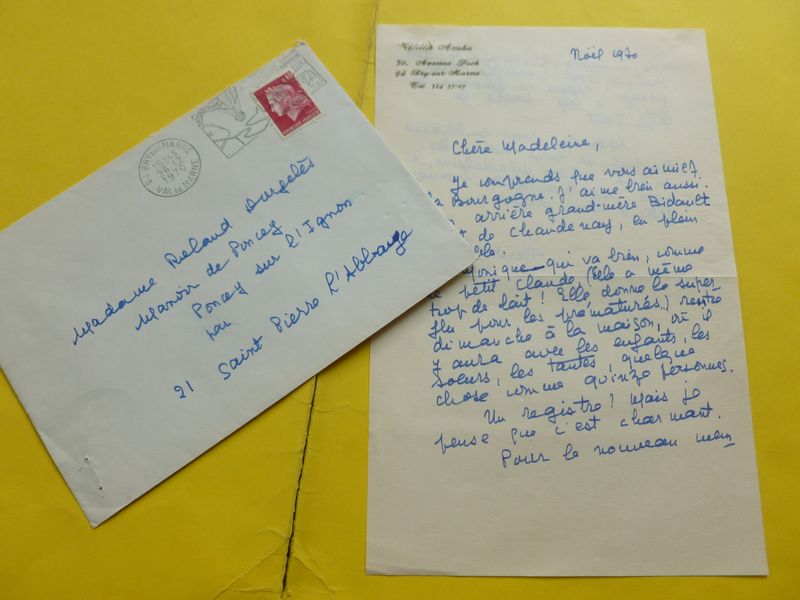 50, Avenue Foch
94 Bry-sur-Marne
Tél. 324
Noël 1970
Chère Madeleine,
Je comprends que vous aimiez
la Bourgogne. J'aime bien aussi.
arrière grand-mère Bidault
de Chaudenay, en plein
Monique qui va bien, comme
petit Claude (elle a même
trop de lait! Elle donne le super
flu pour les prématurés) rentre
dimanche à la maison, où il
y aura avec les enfants, les
soeurs, les tantes, quelque
chose comme quinze personnes.
Un registre! Mais je
pense que c'est charmant.
Pour le nouveau
94 BRY-SUR-MARNE
15H45
26-12
1970
VAL DE MARNE
0,40
Madame Roland Dorgelès
Manoir de Poncey
Poncey sur l'Ignon
par
21 Saint Pierre